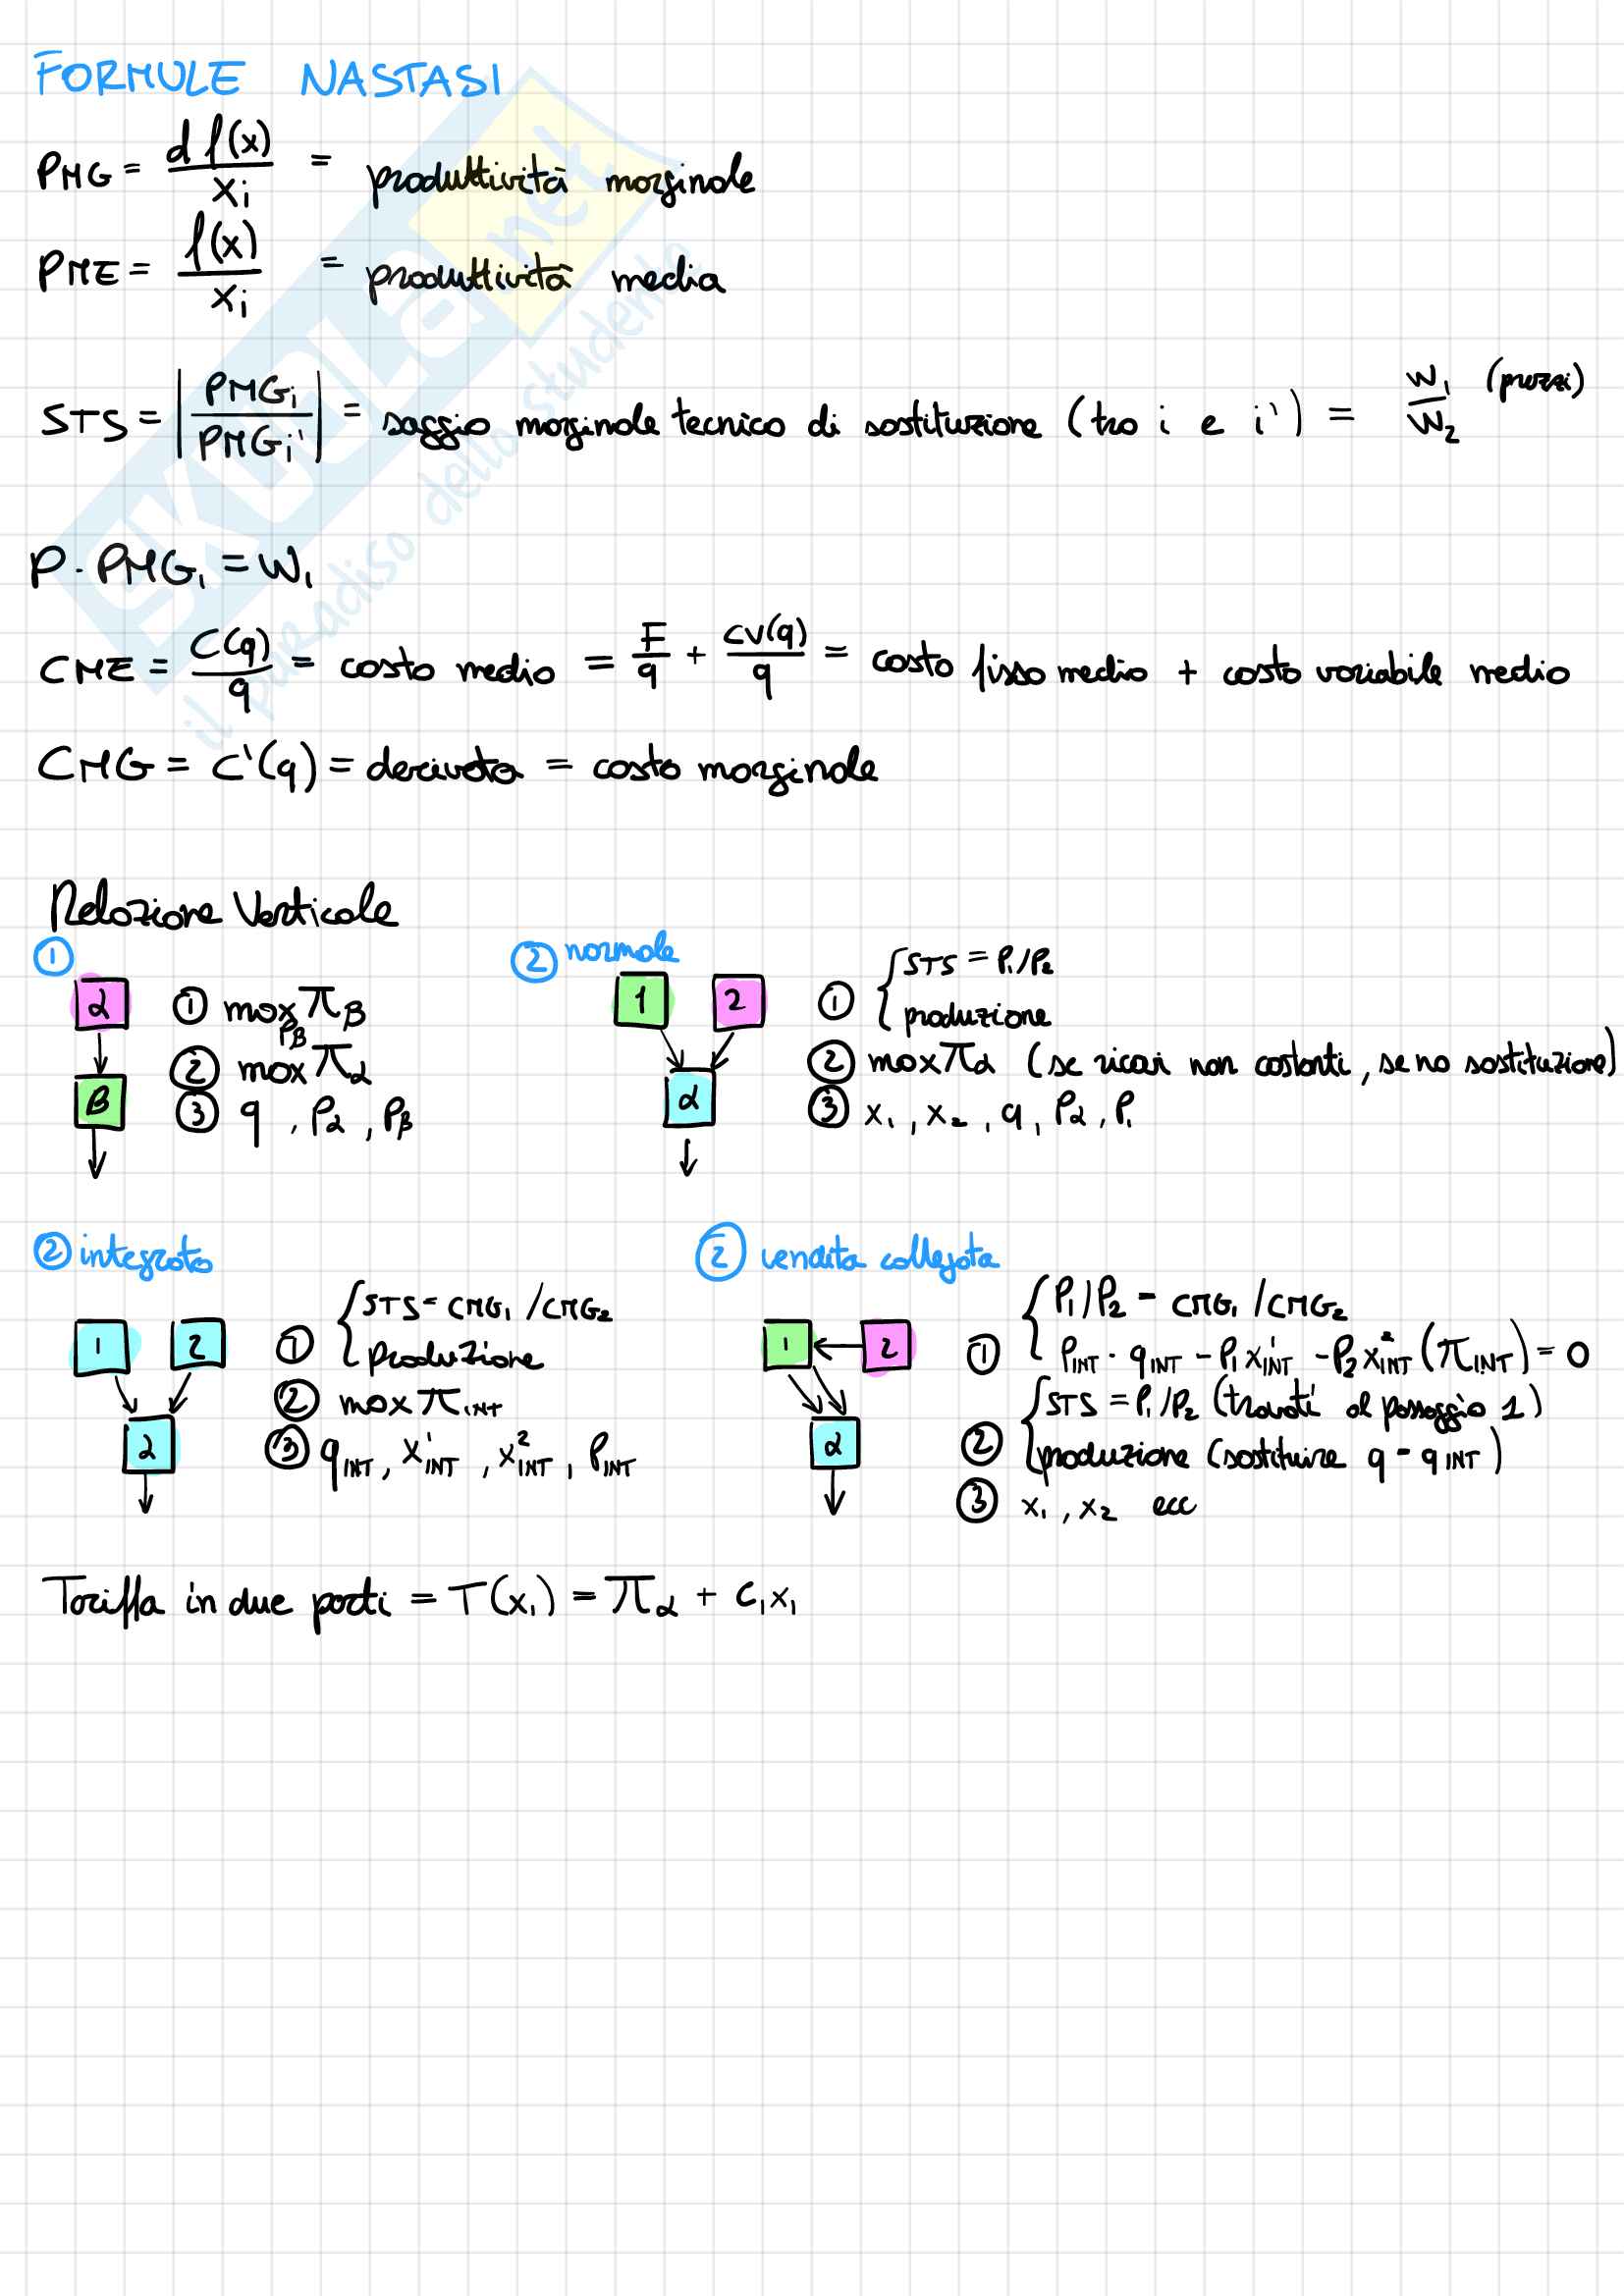 FORMULE NASTASI
PMG = d f(x) / xi = produttività marginale
PME = f(x) / xi = produttività media
STS = |PMGi / PMGi'| = saggio marginale tecnico di sostituzione (tra i e i') = W1 / W2 (prezzi)
P · PMG1 = W1
CME = C(q) / q = costo medio = F / q + CV(q) / q = costo fisso medio + costo variabile medio
CMG = C'(q) = derivata = costo marginale
Relazione Verticale
①
α
β
① max πβ
Pβ
② max πα
③ q, Pα, Pβ
② normale
1 2
α
① { STS = P1/P2
produzione
② max πα (se ricavi non costanti, se no sostituzione)
③ x1, x2, q, Pα, P1
② integrato
1 2
α
① { STS = CMG1 / CMG2
produzione
② max πINT
③ qINT, x¹INT, x²INT, PINT
② vendita collegata
1 2
α
① { P1/P2 = CMG1 / CMG2
PINT · qINT - P1 x¹INT - P2 x²INT (πINT) = 0
② { STS = P1/P2 (trovati al passaggio 1)
produzione (sostituire q = qINT)
③ x1, x2 ecc
Tariffa in due parti = T(x1) = πα + c1x1
SKUOLA.net
il paradiso dello studente